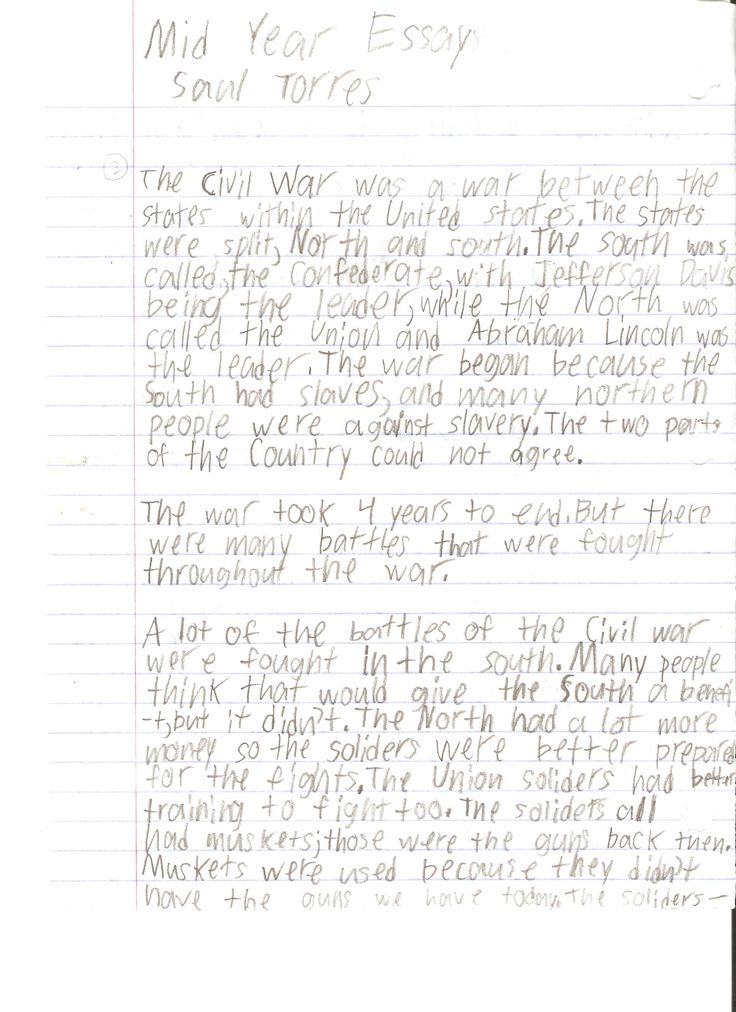 Mid Year Essay
Saul Torres
The Civil War was a war between the
states within the United states. The states
were split, North and south. The south was
called, the Confederate, with Jefferson Davis
being the leader, while the North was
called the Union and Abraham Lincoln was
the leader. The war began because the
South had slaves, and many northern
people were against slavery. The two parts
of the Country could not agree.
The war took 4 years to end. But there
were many battles that were fought
throughout the war.
A lot of the battles of the Civil war
were fought in the south. Many people
think that would give the South a benefi
-t, but it didn't. The North had a lot more
money so the soliders were better prepared
for the fights. The Union soliders had better
training to fight too. The soliders all
had muskets; those were the guns back then.
Muskets were used because they didn't
have the guns we have today. The soliders -